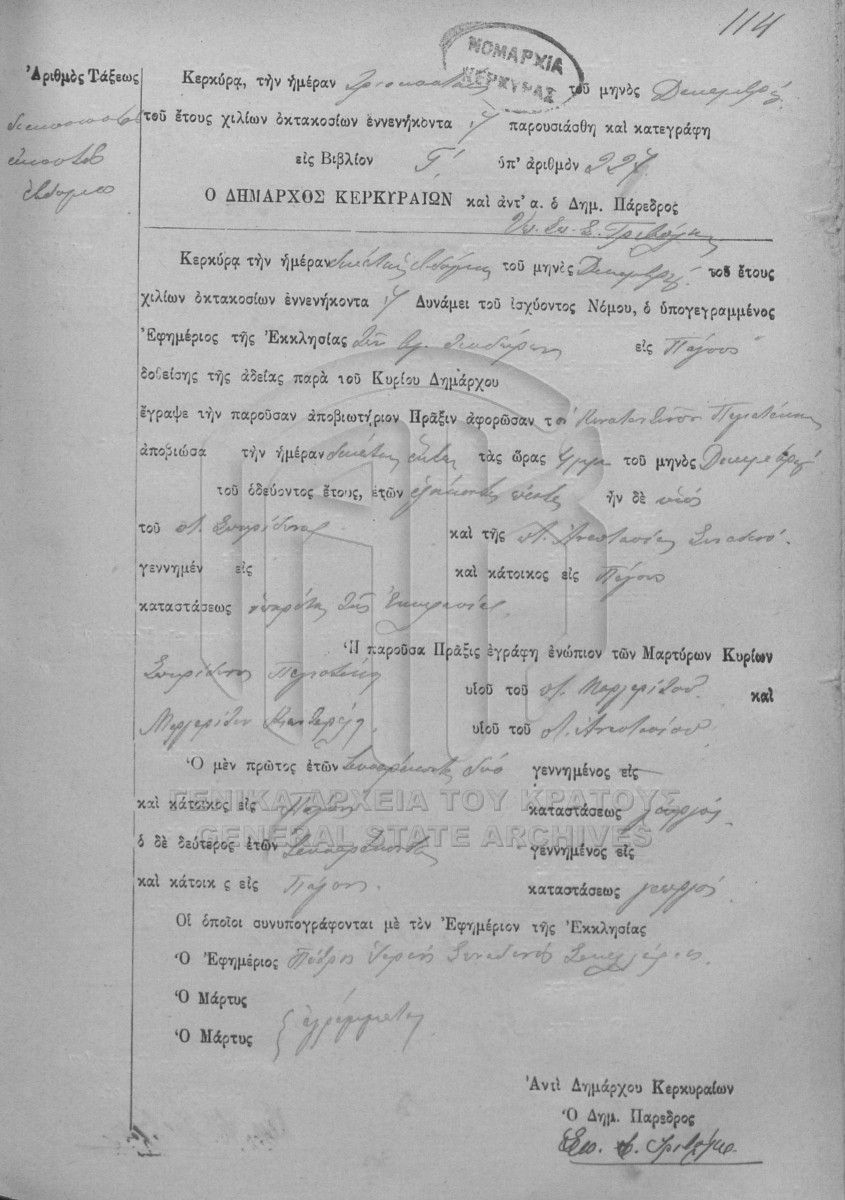 114
ΝΟΜΑΡΧΙΑ
ΚΕΡΚΥΡΑΣ
Ἀριθμὸς Τάξεως
διακοσιοστὸς
εἰκοστὸς
ἕβδομος
Κερκύρα, τὴν ἡμέραν τριακοστὴν τοῦ μηνὸς Δεκεμβρίου
τοῦ ἔτους χιλίων ὀκτακοσίων ἐννενήκοντα παρουσιάσθη καὶ κατεγράφη
εἰς Βιβλίον Γ! ὑπ' ἀριθμὸν 227
Ο ΔΗΜΑΡΧΟΣ ΚΕΡΚΥΡΑΙΩΝ καὶ ἀντ' α. ὁ Δημ. Πάρεδρος
Κερκύρᾳ τὴν ἡμέραν δεκάτην ἑβδόμην τοῦ μηνὸς Δεκεμβρίου τοῦ ἔτους
χιλίων ὀκτακοσίων ἐννενήκοντα Δυνάμει τοῦ ἰσχύοντος Νόμου, ὁ ὑπογεγραμμένος
Ἐφημέριος τῆς Ἐκκλησίας τῶν Ἁγ. Θεοδώρων εἰς Πάγους
δοθείσης τῆς ἀδείας παρὰ τοῦ Κυρίου Δημάρχου
ἔγραψε τὴν παροῦσαν ἀποβιωτήριον Πρᾶξιν ἀφορῶσαν τὸν
ἀποβιώσα τὴν ἡμέραν δεκάτην ἕκτην τὰς ὥρας τοῦ μηνὸς Δεκεμβρίου
τοῦ ὁδεύοντος ἔτους, ἐτῶν ἑξήκοντα πέντε ἦν δὲ υἱὸς
τοῦ ποτ. Σπυρίδωνος καὶ τῆς ποτ. Ἀναστασίας
γεννημέν εἰς καὶ κάτοικος εἰς Πάγους
καταστάσεως ὑπηρέτης τῆς Ἐκκλησίας
Ἡ παροῦσα Πρᾶξις ἐγράφη ἐνώπιον τῶν Μαρτύρων Κυρίων
Σπυρίδωνος υἱοῦ τοῦ ποτ. Μαργαρίτου καὶ
Μαργαρίτου υἱοῦ τοῦ ποτ. Ἀναστασίου
Ὁ μὲν πρῶτος ἐτῶν Τεσσαράκοντα δύο γεννημένος εἰς
καὶ κάτοικος εἰς Πάγους καταστάσεως γεωργός
ὁ δὲ δεύτερος ἐτῶν Τεσσαράκοντα γεννημένος εἰς
καὶ κάτοικ ς εἰς Πάγους καταστάσεως γεωργός
Οἱ ὁποῖοι συνυπογράφονται μὲ τὸν Ἐφημέριον τῆς Ἐκκλησίας
Ὁ Ἐφημέριος Πέτρος Ἱερεὺς
Ὁ Μάρτυς
Ὁ Μάρτυς ἀγράμματοι
Ἀντὶ Δημάρχου Κερκυραίων
Ὁ Δημ. Παρεδρος
ΓΕΝΙΚΑ ΑΡΧΕΙΑ ΤΟΥ ΚΡΑΤΟΥΣ
GENERAL STATE ARCHIVES